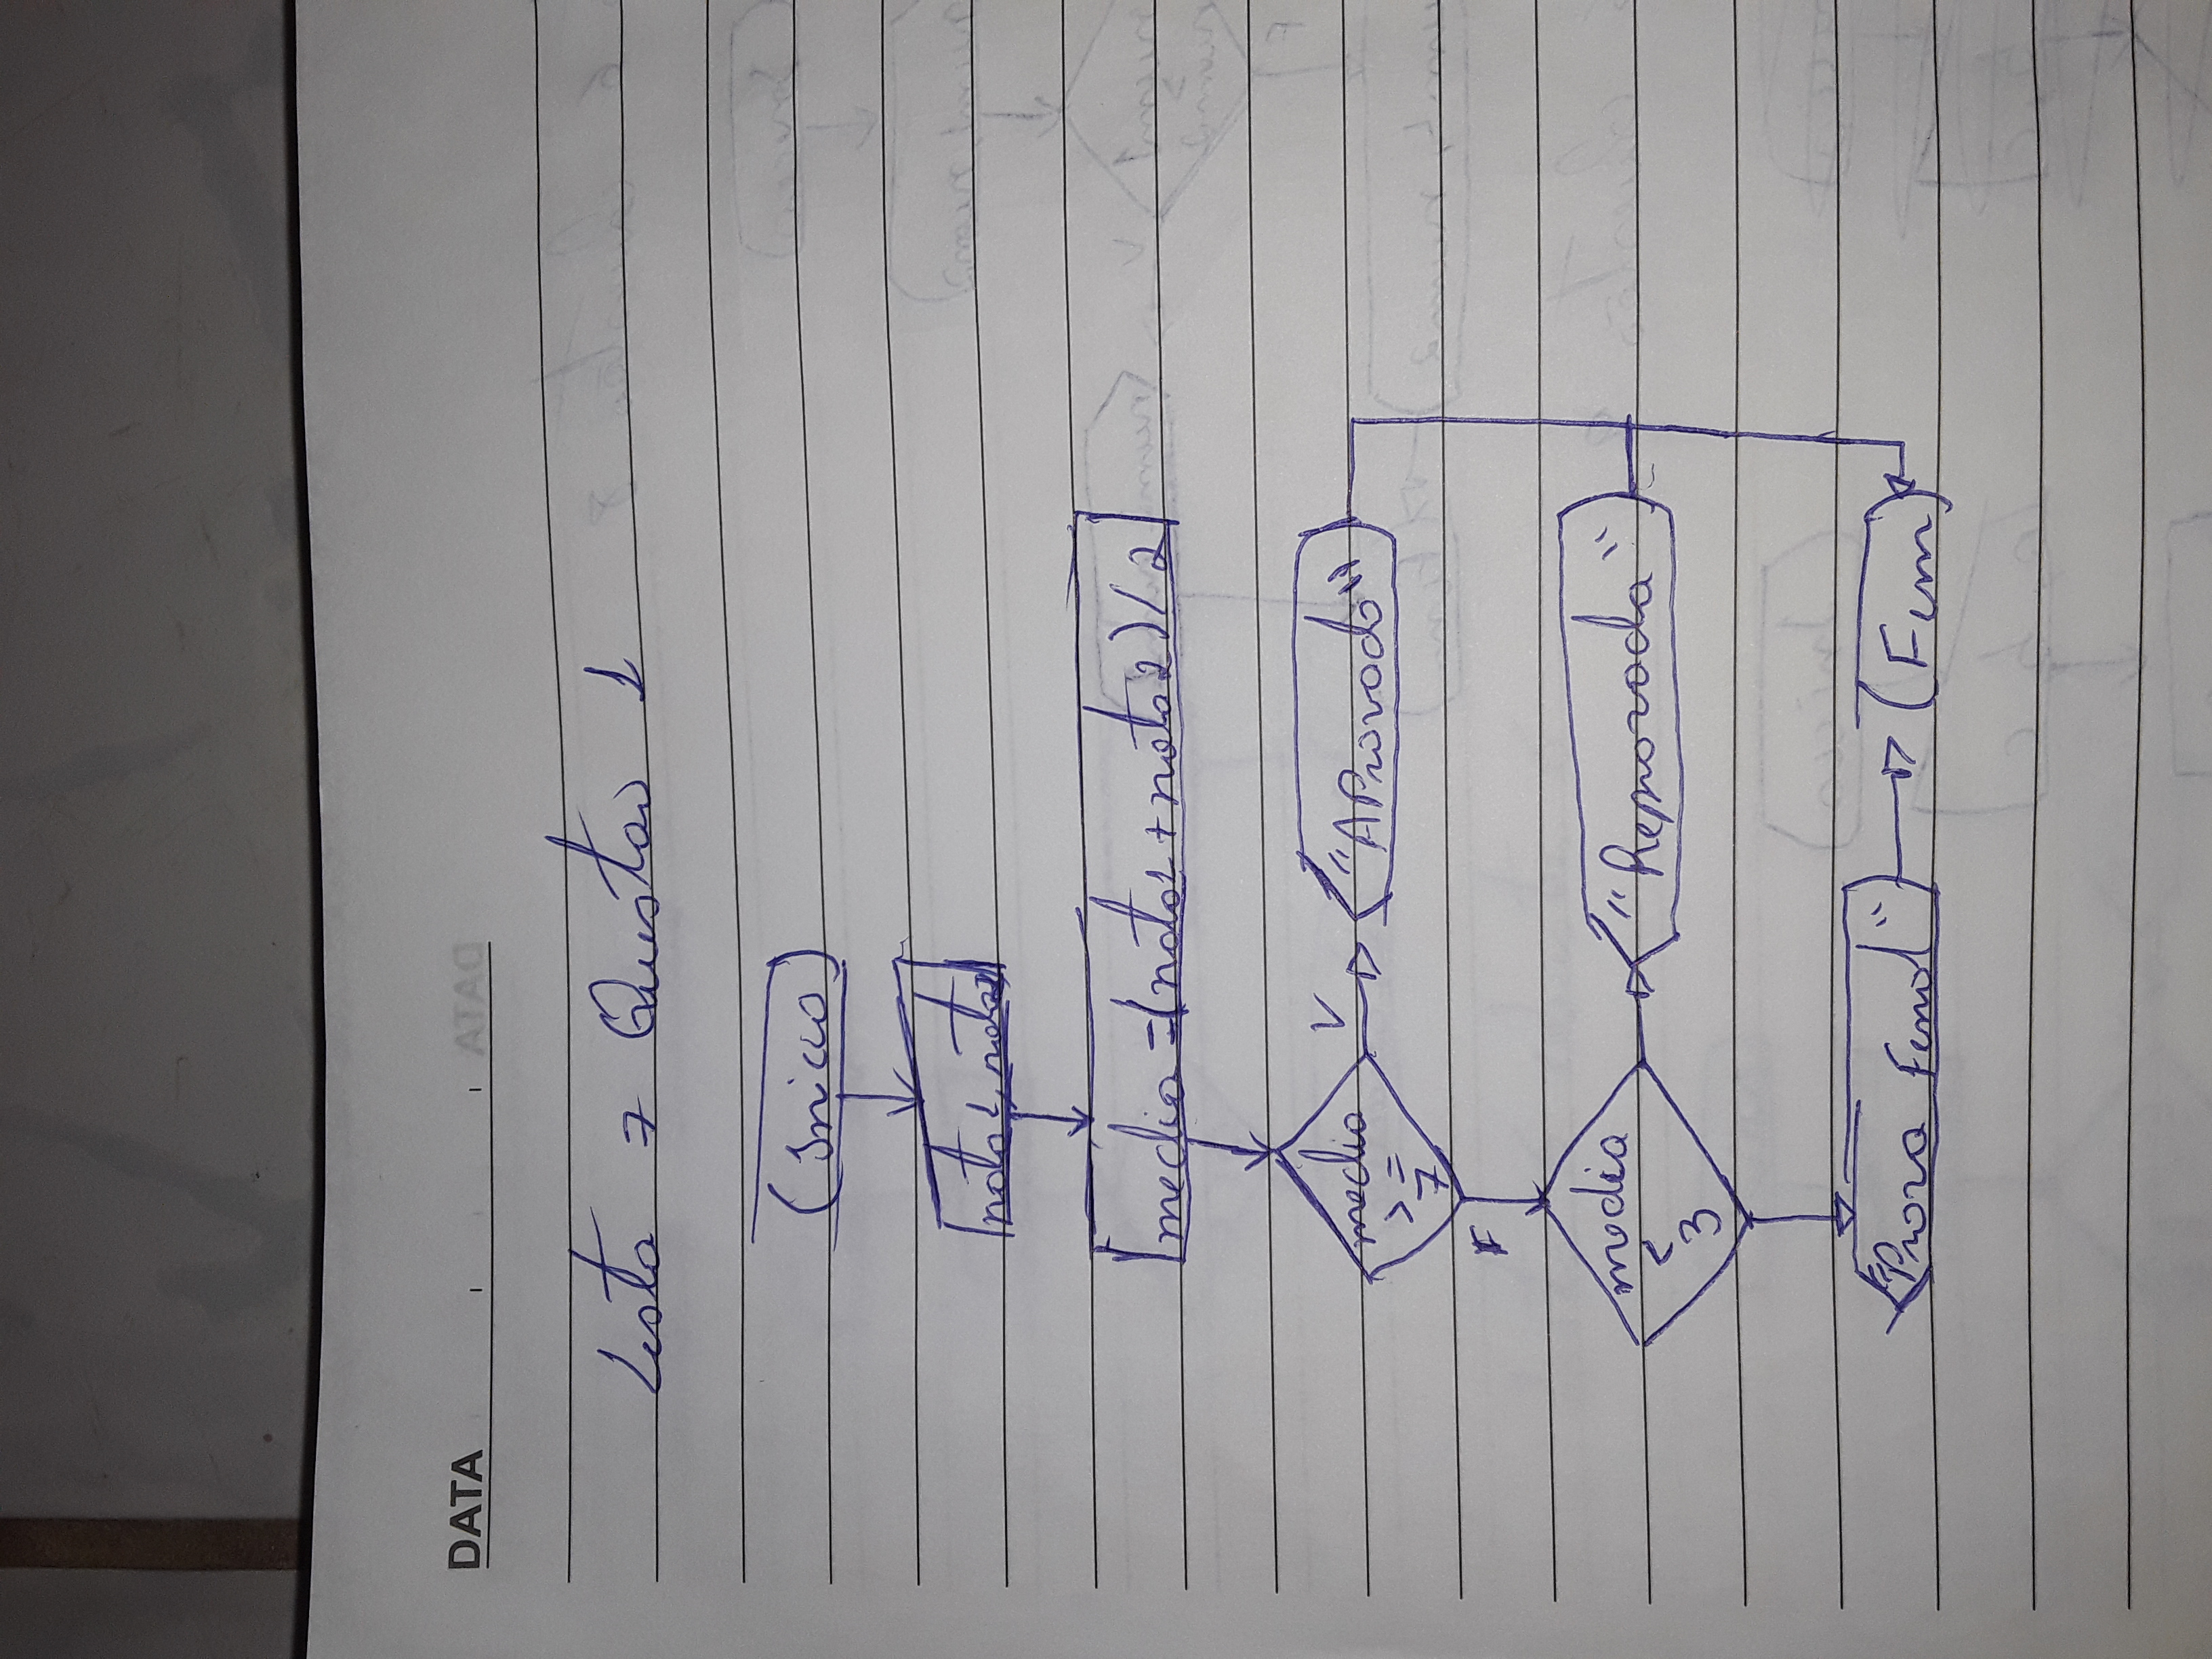 DATA
Lista 7 Questão 1
(Inicio)
nota1, nota2
media = (nota1 + nota2) / 2
media >= 7
V
"APROvado"
F
media < 3
"Reprovado"
"Prova Final"
(Fim)